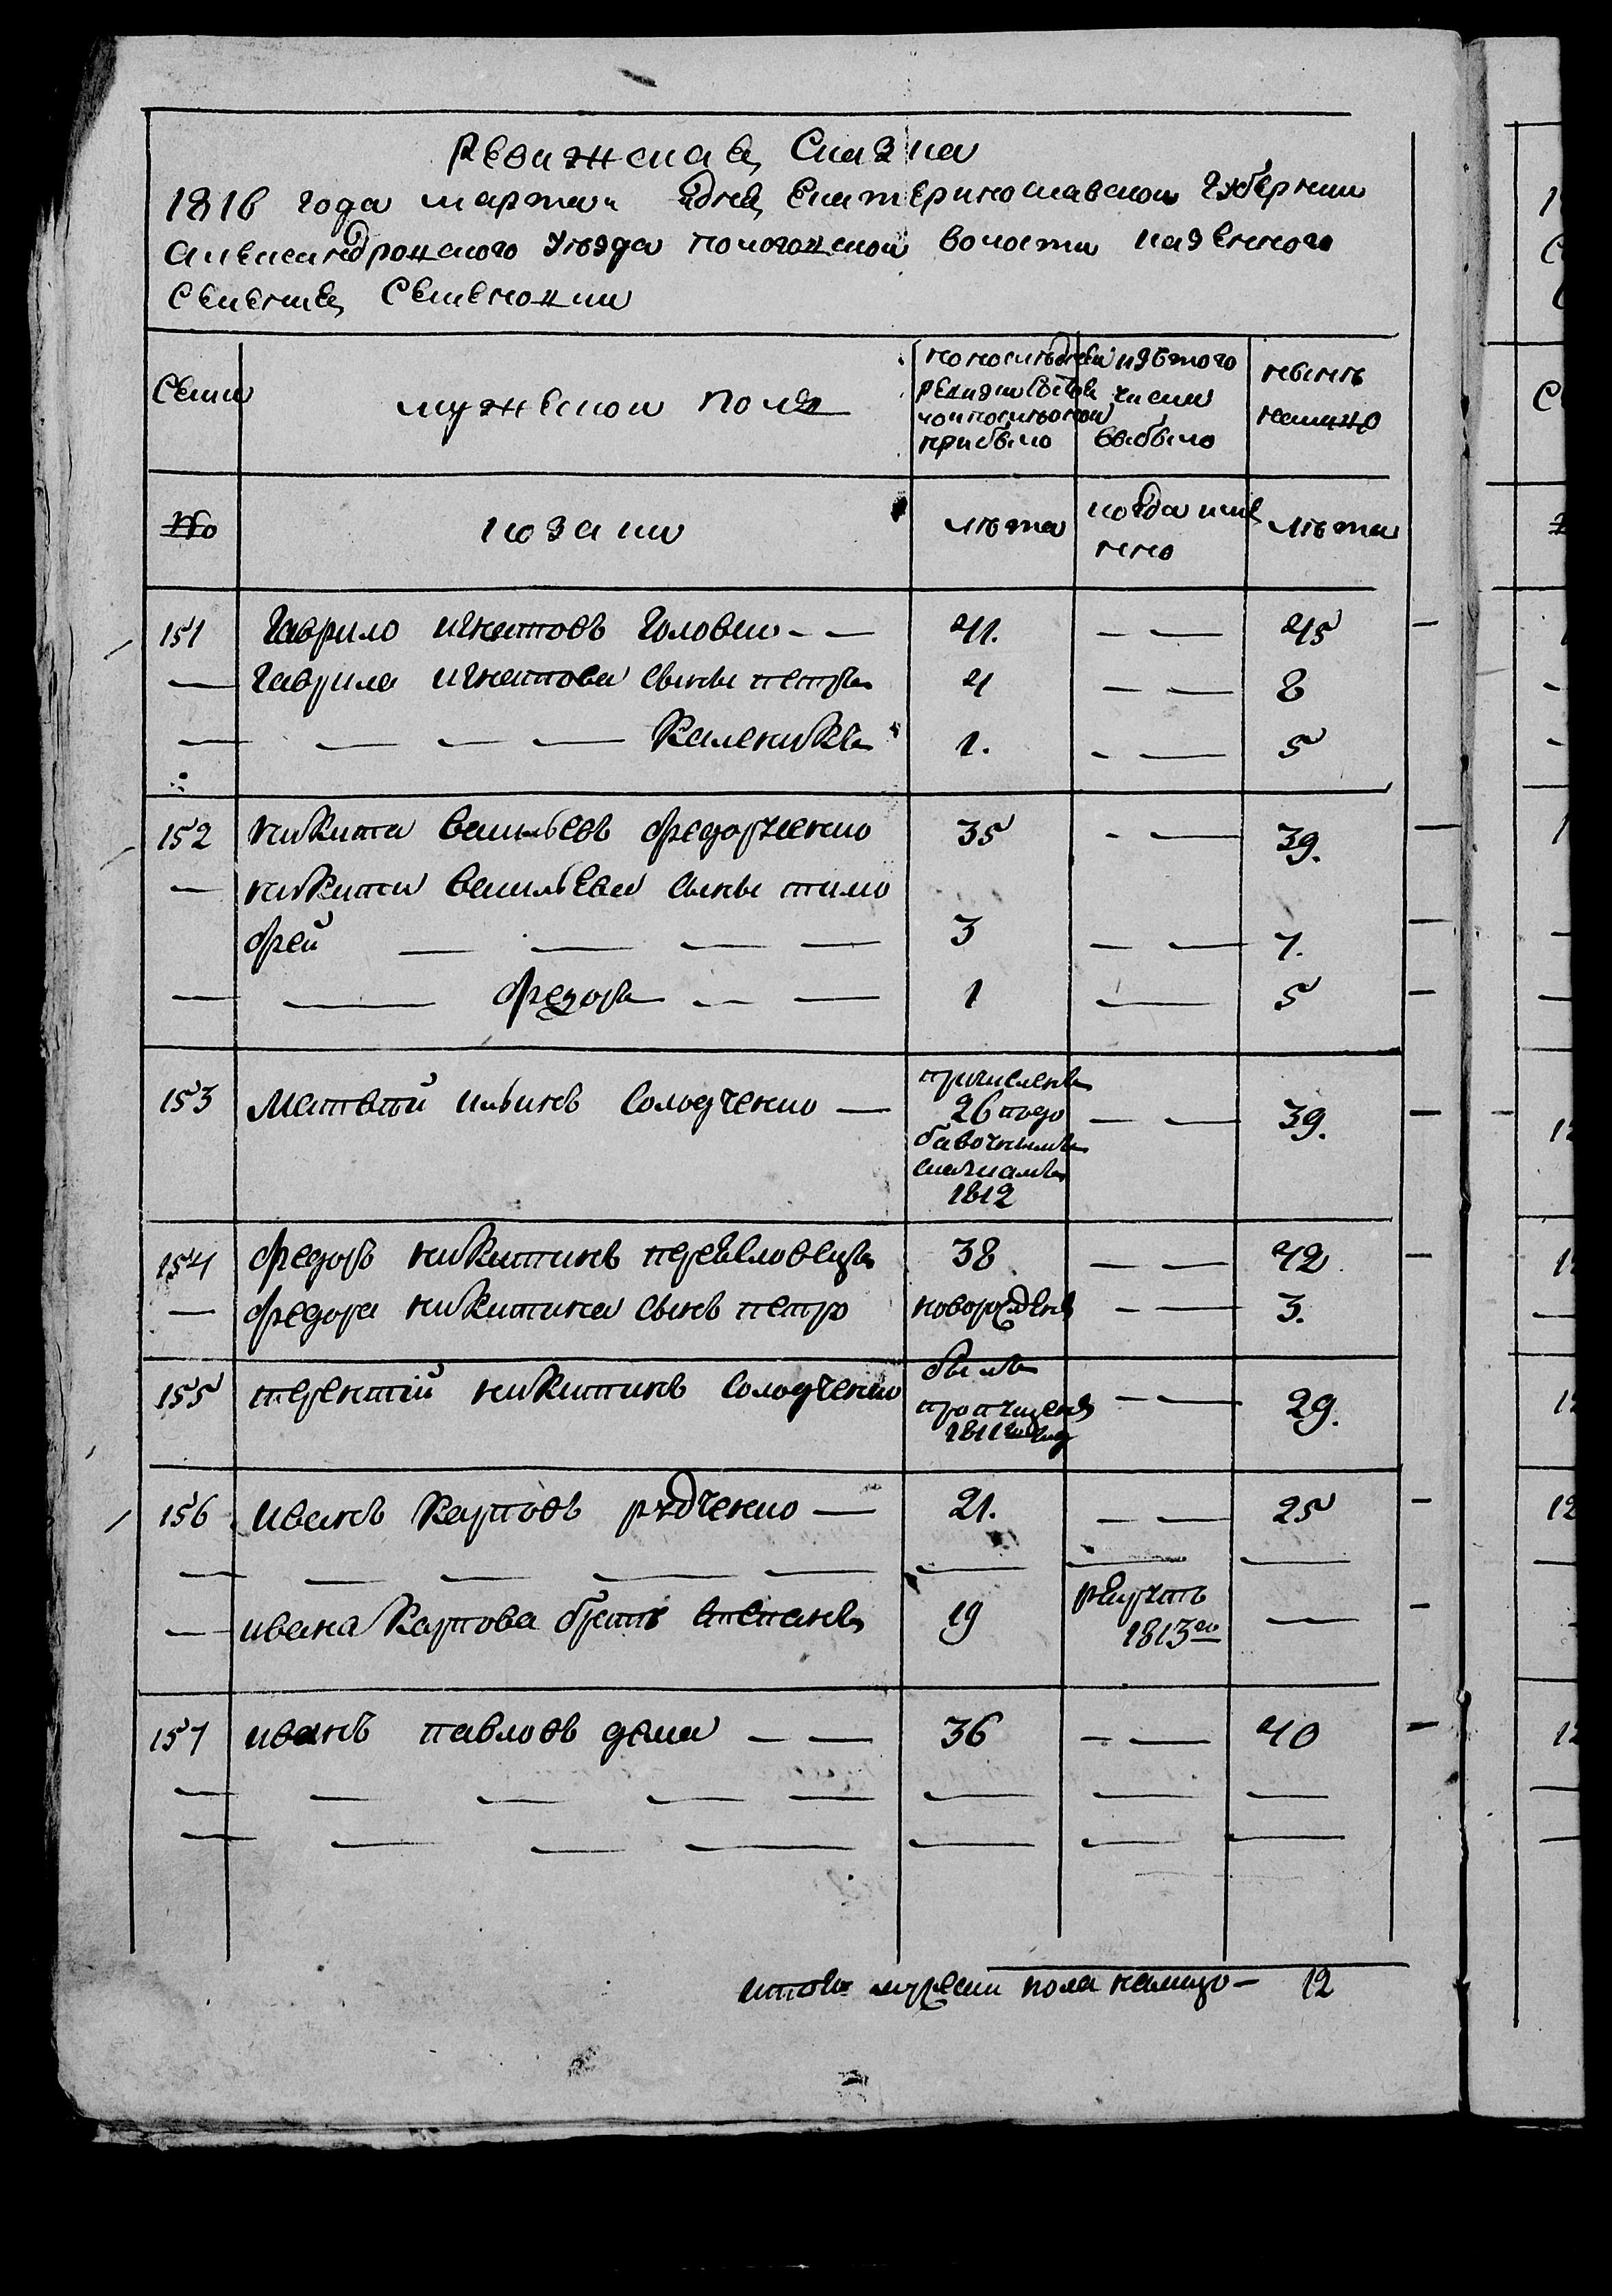 Ревижская Сказка
1816 года марта дня Екатеринославской Губернии
Александровского Уезда пологовской волости казенного
Селения Семеновки
Семьи
мужеской полъ
по последней ревизии состояло и после оной прибыло
изъ того числа выбыло
ныне налицо
№
козаки
лѣта
когда имянно
лѣта
151 Гаврило игнатовъ Головко — — 41. — — 45
— Гаврила игнатова сыны петръ 4 — — 8
— — — — Каленикъ 1. — — 5
152 никита васильевъ федорченко 35 — — 39.
— никиты васильева сыны тимо
фей — — — — 3 — — 7.
— — федоръ — — 1 — 5
153 Матвѣй ильинъ солодченко — причисленъ 26 подо бавочнымъ сказкамъ 1812 — — 39.
154 федоръ никитинъ 38 — — 42
— федора никитина сынъ петро новорожденъ — — 3.
155 терентий никитинъ солодченко былъ пропущенъ 1811 году — — 29.
156 иванъ Карповъ рудченко — 21. — — 25
— — — — — — — —
— ивана Карпова братъ степанъ 19 рекрутъ 1813го —
157 иванъ павловъ дема — — 36 — — 40
— — — — — — — —
— — — — — — —
итого мужеска пола налицо — 12